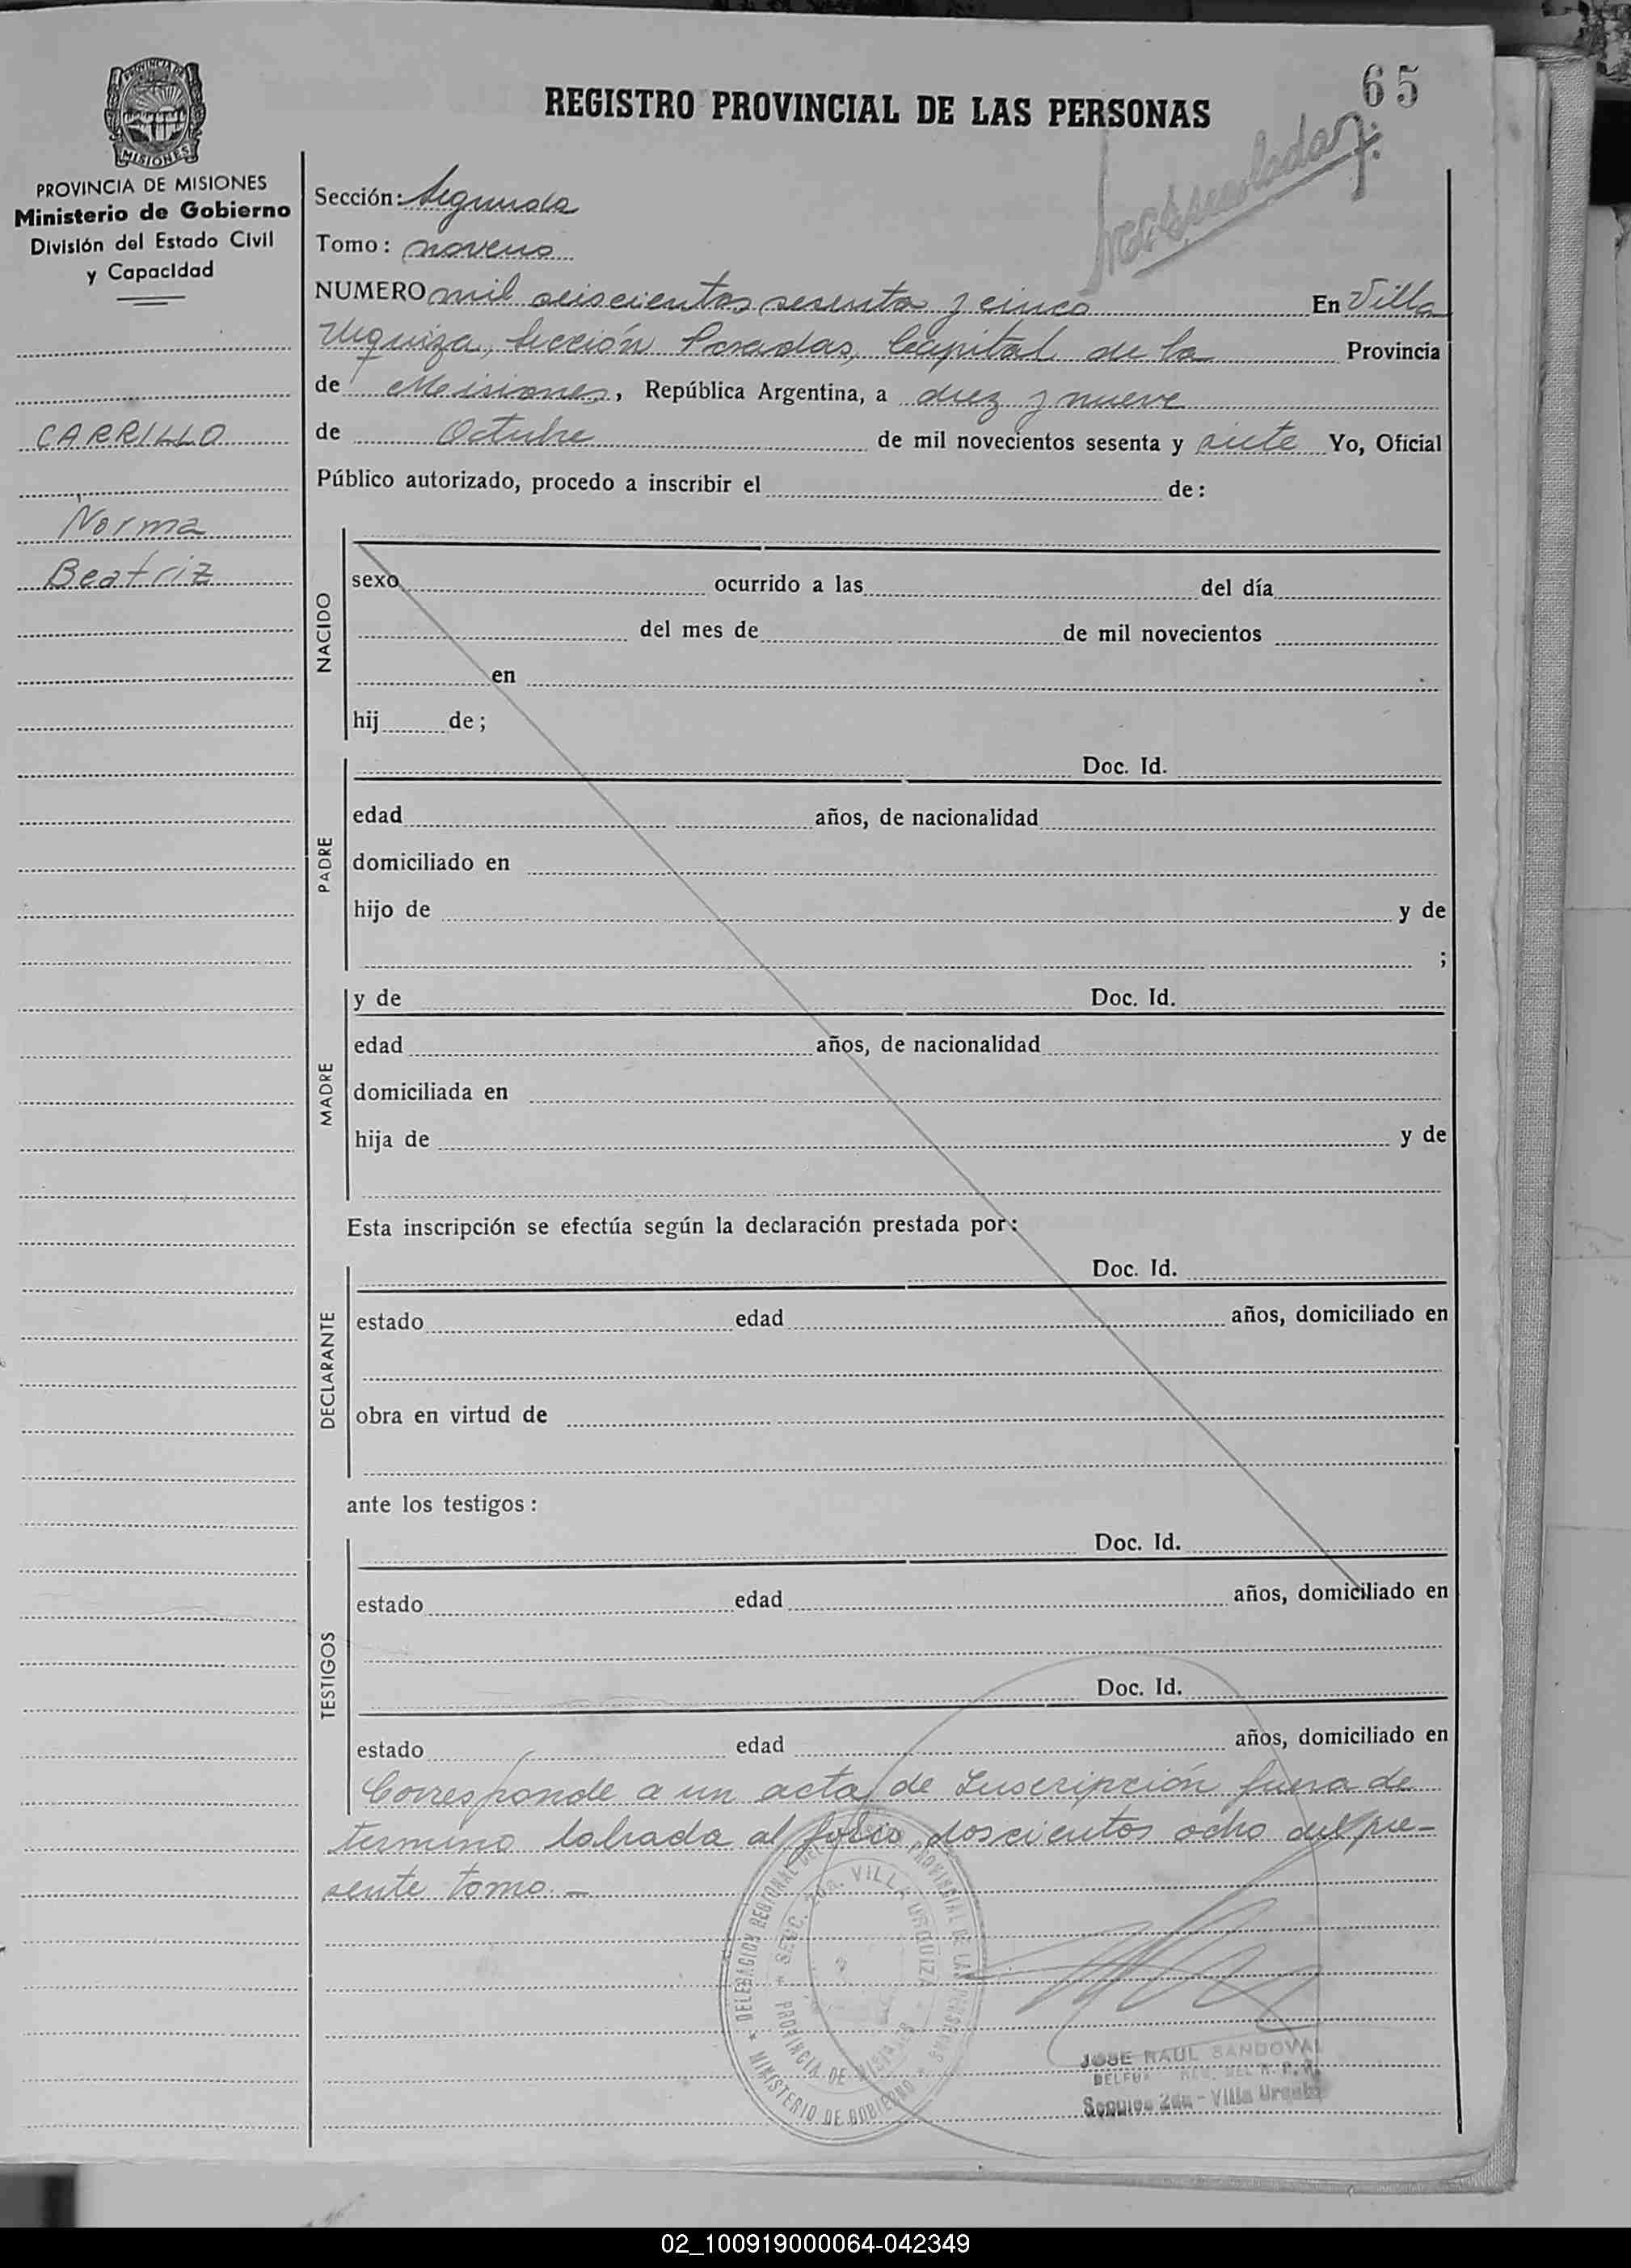 65
REGISTRO PROVINCIAL DE LAS PERSONAS
PROVINCIA DE
MISIONES
PROVINCIA DE MISIONES
Ministerio de Gobierno
División del Estado Civil
y Capacidad
CARRILLO
Norma
Beatriz
Sección: Segunda
Tomo: noveno
NUMERO mil seiscientos sesenta y cinco En Villa
Urquiza, Sección Posadas, Capital de la Provincia
de Misiones, República Argentina, a diez y nueve
de Octubre de mil novecientos sesenta y siete Yo, Oficial
Público autorizado, procedo a inscribir el de:
NACIDO
sexo ocurrido a las del día
del mes de de mil novecientos
en
hij de;
PADRE
Doc. Id.
edad años, de nacionalidad
domiciliado en
hijo de y de
;
MADRE
y de Doc. Id.
edad años, de nacionalidad
domiciliada en
hija de y de
Esta inscripción se efectúa según la declaración prestada por:
DECLARANTE
Doc. Id.
estado edad años, domiciliado en
obra en virtud de
ante los testigos:
TESTIGOS
Doc. Id.
estado edad años, domiciliado en
Doc. Id.
estado edad años, domiciliado en
Corresponde a un acta de Inscripción fuera de
termino labrada al folio doscientos ocho del pre-
sente tomo.-
DELEGACION REGIONAL DEL PROVINCIAL DE LAS PERSONAS
SECC. 2da. VILLA URQUIZA
PROVINCIA DE MISIONES
MINISTERIO DE GOBIERNO
JOSE RAUL SANDOVAL
DEL R. P. P.
2da - Villa Urquiza
02_100919000064-042349